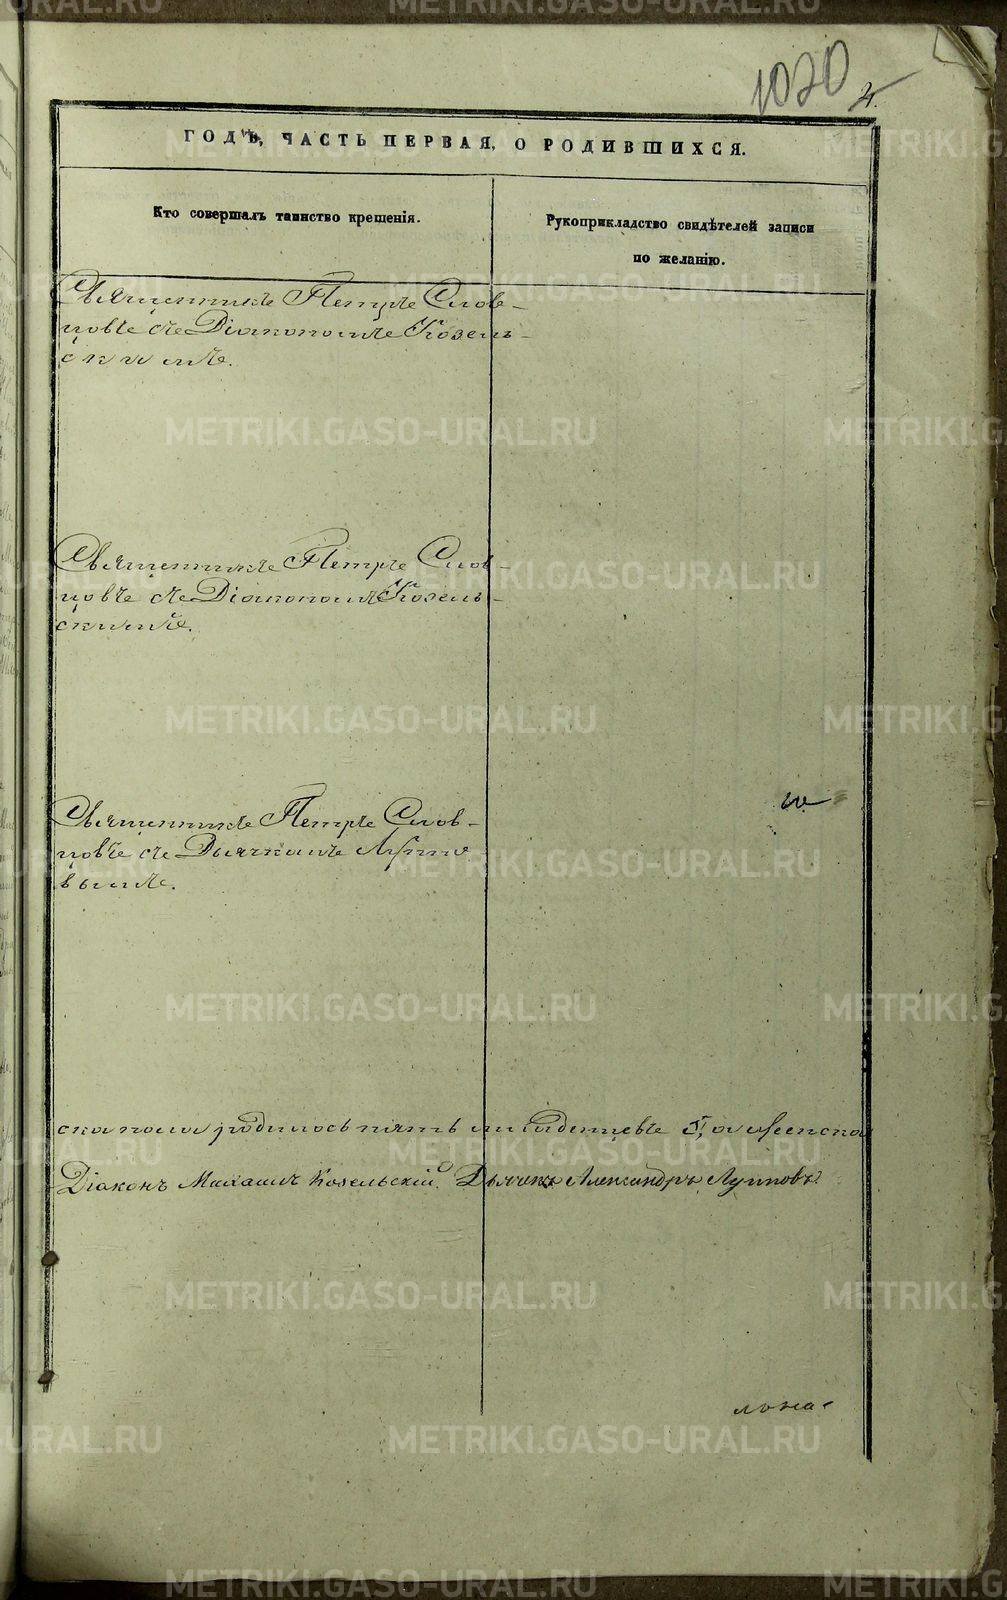 1020
4.
ГОДЪ, ЧАСТЬ ПЕРВАЯ, О РОДИВШИХСЯ.
Кто совершалъ таинство крещенія.
Рукоприкладство свидѣтелей записи
по желанію.
Священникъ Петръ Слов-
цовъ съ Діакономъ Козель-
скимъ.
Священникъ Петръ Слов-
цовъ съ Діакономъ Козель-
скимъ.
Священникъ Петръ Слов-
цовъ съ Дьячкомъ Луппо
вымъ.
ска пола родилось пять младенцевъ 5, а женска
Діаконъ Михаилъ Козельскій. Дьячекъ Александръ Лупповъ
METRIKI.GASO-URAL.RU